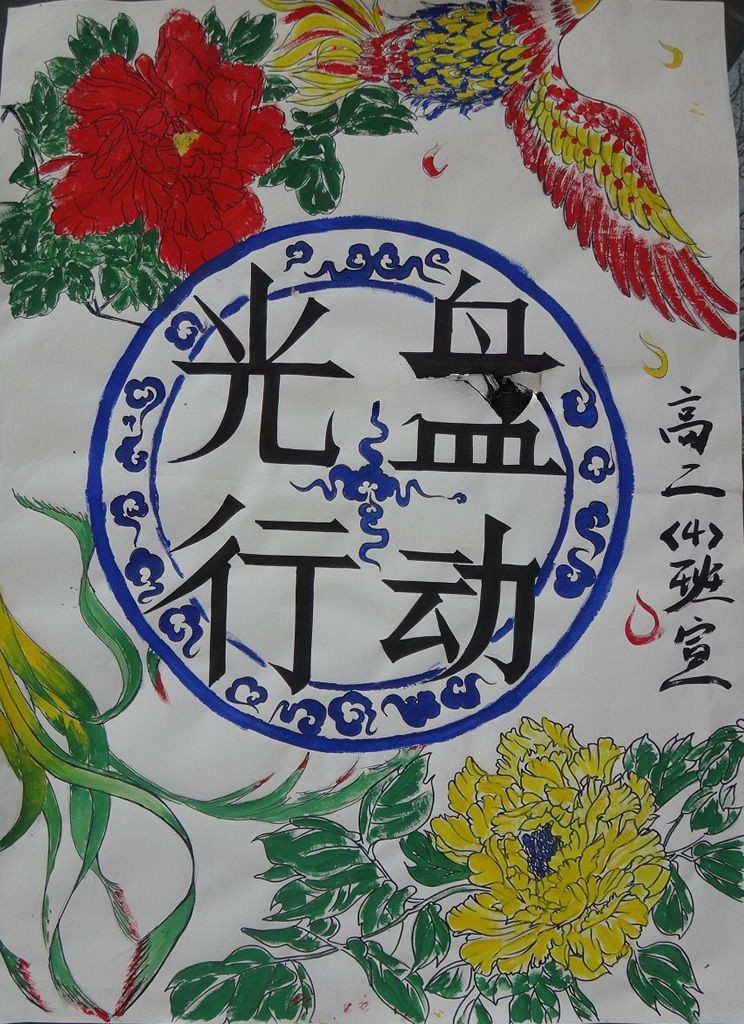 光盘
行动
高二<4>班宣